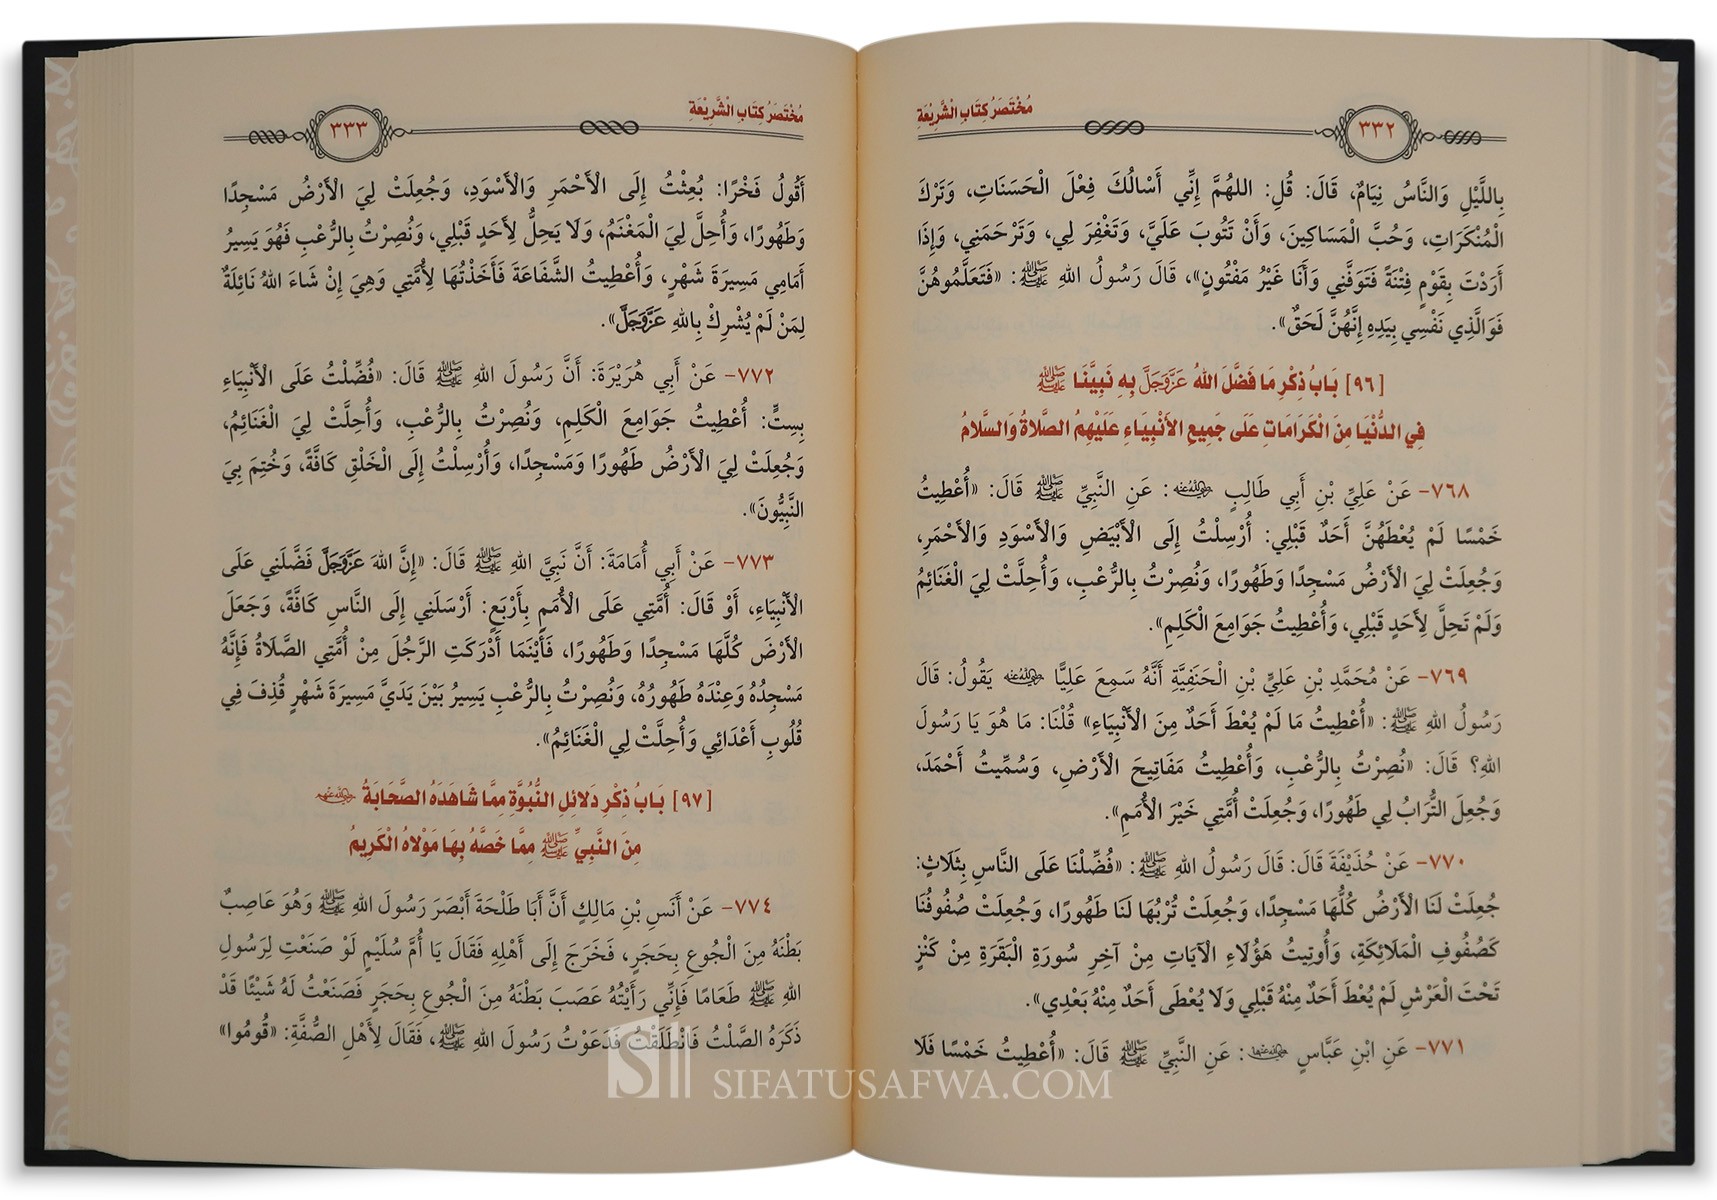 مُخْتَصَرُ كِتَابِ الْشَّرِيْعَةِ
٣٣٢
بِاللَّيْلِ وَالنَّاسُ نِيَامٌ، قَالَ: قُلِ: اللهُمَّ إِنِّي أَسْالُكَ فِعْلَ الْحَسَنَاتِ، وَتَرْكَ
الْمُنْكَرَاتِ، وَحُبَّ الْمَسَاكِينَ، وَأَنْ تَتُوبَ عَلَيَّ، وَتَغْفِرَ لِي، وَتَرْحَمَنِي، وَإِذَا
أَرَدْتَ بِقَوْمٍ فِتْنَةً فَتَوَفَّنِي وَأَنَا غَيْرُ مَفْتُونٍ»، قَالَ رَسُولُ اللهِ ﷺ: «فَتَعَلَّمُوهُنَّ
فَوَالَّذِي نَفْسِي بِيَدِهِ إِنَّهُنَّ لَحَقٌ».
[٩٦] بَابُ ذِكْرِ مَا فَضَّلَ اللهُ عَزَّوَجَلَّ بِهِ نَبِيَّنَا ﷺ
فِي الدُّنْيَا مِنَ الْكَرَامَاتِ عَلَى جَمِيعِ الأَنْبِيَاءِ عَلَيْهِمُ الصَّلاةُ وَالسَّلامُ
٧٦٨- عَنْ عَلِيِّ بْنِ أَبِي طَالِبٍ رضي الله عنه: عَنِ النَّبِيِّ ﷺ قَالَ: «أُعْطِيتُ
خَمْسًا لَمْ يُعْطَهُنَّ أَحَدٌ قَبْلِي: أُرْسِلْتُ إِلَى الْأَبْيَضِ وَالْأَسْوَدِ وَالْأَحْمَرِ،
وَجُعِلَتْ لِيَ الْأَرْضُ مَسْجِدًا وَطَهُورًا، وَنُصِرْتُ بِالرُّعْبِ، وَأُحِلَّتْ لِيَ الْغَنَائِمُ
وَلَمْ تَحِلَّ لِأَحَدٍ قَبْلِي، وَأُعْطِيتُ جَوَامِعَ الْكَلِمِ».
٧٦٩- عَنْ مُحَمَّدِ بْنِ عَلِيِّ بْنِ الْحَنَفِيَّةِ أَنَّهُ سَمِعَ عَلِيًّا رضي الله عنه يَقُولُ: قَالَ
رَسُولُ اللهِ ﷺ: «أُعْطِيتُ مَا لَمْ يُعْطَ أَحَدٌ مِنَ الْأَنْبِيَاءِ» قُلْنَا: مَا هُوَ يَا رَسُولَ
اللهِ؟ قَالَ: «نُصِرْتُ بِالرُّعْبِ، وَأُعْطِيتُ مَفَاتِيحَ الْأَرْضِ، وَسُمِّيتُ أَحْمَدَ،
وَجُعِلَ التُّرَابُ لِي طَهُورًا، وَجُعِلَتْ أُمَّتِي خَيْرَ الْأُمَمِ».
٧٧٠- عَنْ حُذَيْفَةَ قَالَ: قَالَ رَسُولُ اللهِ ﷺ: «فُضِّلْنَا عَلَى النَّاسِ بِثَلَاثٍ:
جُعِلَتْ لَنَا الْأَرْضُ كُلُّهَا مَسْجِدًا، وَجُعِلَتْ تُرْبُهَا لَنَا طَهُورًا، وَجُعِلَتْ صُفُوفُنَا
كَصُفُوفِ الْمَلَائِكَةِ، وَأُوتِيتُ هَؤُلَاءِ الْآيَاتِ مِنْ آخِرِ سُورَةِ الْبَقَرَةِ مِنْ كَنْزٍ
تَحْتَ الْعَرْشِ لَمْ يُعْطَ أَحَدٌ مِنْهُ قَبْلِي وَلَا يُعْطَى أَحَدٌ مِنْهُ بَعْدِي».
٧٧١- عَنِ ابْنِ عَبَّاسٍ رضي الله عنهما: عَنِ النَّبِيِّ ﷺ قَالَ: «أُعْطِيتُ خَمْسًا فَلَا
مُخْتَصَرُ كِتَابِ الْشَّرِيْعَةِ
٣٣٣
أَقُولُ فَخْرًا: بُعِثْتُ إِلَى الْأَحْمَرِ وَالْأَسْوَدِ، وَجُعِلَتْ لِيَ الْأَرْضُ مَسْجِدًا
وَطَهُورًا، وَأُحِلَّ لِيَ الْمَغْنَمُ، وَلَا يَحِلُّ لِأَحَدٍ قَبْلِي، وَنُصِرْتُ بِالرُّعْبِ فَهُوَ يَسِيرُ
أَمَامِي مَسِيرَةَ شَهْرٍ، وَأُعْطِيتُ الشَّفَاعَةَ فَأَخَذْتُهَا لِأُمَّتِي وَهِيَ إِنْ شَاءَ اللهُ نَائِلَةٌ
لِمَنْ لَمْ يُشْرِكْ بِاللهِ عَزَّوَجَلَّ».
٧٧٢- عَنْ أَبِي هُرَيْرَةَ: أَنَّ رَسُولَ اللهِ ﷺ قَالَ: «فُضِّلْتُ عَلَى الْأَنْبِيَاءِ
بِسِتٍّ: أُعْطِيتُ جَوَامِعَ الْكَلِمِ، وَنُصِرْتُ بِالرُّعْبِ، وَأُحِلَّتْ لِيَ الْغَنَائِمُ،
وَجُعِلَتْ لِيَ الْأَرْضُ طَهُورًا وَمَسْجِدًا، وَأُرْسِلْتُ إِلَى الْخَلْقِ كَافَّةً، وَخُتِمَ بِيَ
النَّبِيُّونَ».
٧٧٣- عَنْ أَبِي أُمَامَةَ: أَنَّ نَبِيَّ اللهِ ﷺ قَالَ: «إِنَّ اللهَ عَزَّوَجَلَّ فَضَّلَنِي عَلَى
الْأَنْبِيَاءِ، أَوْ قَالَ: أُمَّتِي عَلَى الْأُمَمِ بِأَرْبَعٍ: أَرْسَلَنِي إِلَى النَّاسِ كَافَّةً، وَجَعَلَ
الْأَرْضَ كُلَّهَا مَسْجِدًا وَطَهُورًا، فَأَيْنَمَا أَدْرَكَتِ الرَّجُلَ مِنْ أُمَّتِي الصَّلَاةُ فَإِنَّهُ
مَسْجِدُهُ وَعِنْدَهُ طَهُورُهُ، وَنُصِرْتُ بِالرُّعْبِ يَسِيرُ بَيْنَ يَدَيَّ مَسِيرَةَ شَهْرٍ قُذِفَ فِي
قُلُوبِ أَعْدَائِي وَأُحِلَّتْ لِي الْغَنَائِمُ».
[٩٧] بَابُ ذِكْرِ دَلائِلِ النُّبُوَّةِ مِمَّا شَاهَدَهُ الصَّحَابَةُ رضي الله عنهم
مِنَ النَّبِيِّ ﷺ مِمَّا خَصَّهُ بِهَا مَوْلاهُ الْكَرِيمُ
٧٧٤- عَنْ أَنَسِ بْنِ مَالِكٍ أَنَّ أَبَا طَلْحَةَ أَبْصَرَ رَسُولَ اللهِ ﷺ وَهُوَ عَاصِبٌ
بَطْنَهُ مِنَ الْجُوعِ بِحَجَرٍ، فَخَرَجَ إِلَى أَهْلِهِ فَقَالَ يَا أُمَّ سُلَيْمٍ لَوْ صَنَعْتِ لِرَسُولِ
اللهِ ﷺ طَعَامًا فَإِنِّي رَأَيْتُهُ عَصَبَ بَطْنَهُ مِنَ الْجُوعِ بِحَجَرٍ فَصَنَعْتُ لَهُ شَيْئًا قَدْ
ذَكَرَهُ الصَّلْتُ فَانْطَلَقْتُ فَدَعَوْتُ رَسُولَ اللهِ ﷺ، فَقَالَ لِأَهْلِ الصُّفَّةِ: «قُومُوا»
SIFATUSAFWA.COM